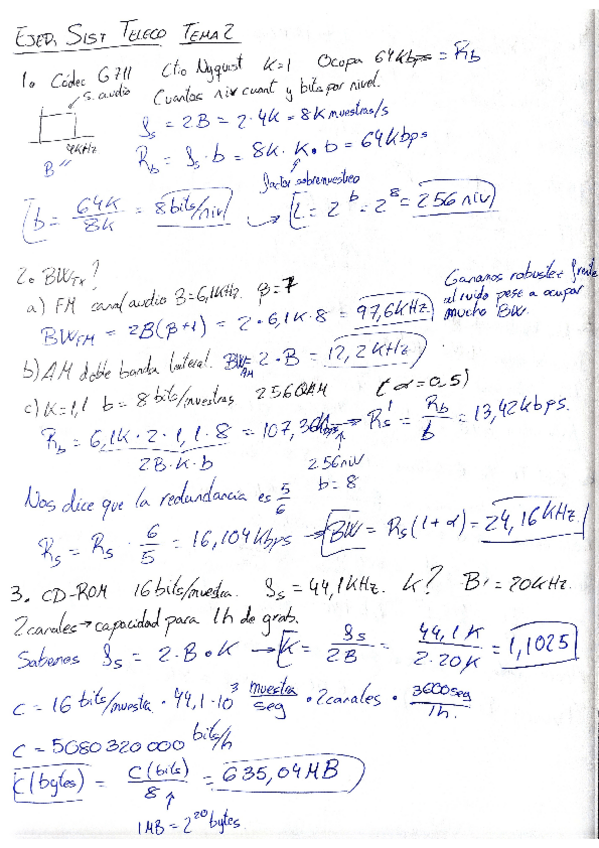 EJER. SIST TELECO TEMA 2
1. Códec G711 Ctio Nyquist K=1 Ocupa 64kbps = Rb
s. audio Cuantos niv cuant y bits por nivel.
4KHz
B"
fs = 2B = 2·4K = 8K muestras/s
Rb = fs · b = 8K · K · b = 64Kbps
factor sobremuestreo
b = 64K/8K = 8 bits/niv → L = 2^b = 2^8 = 256 niv
2. BWTX?
a) FM canal audio B=6,1KHz. β=7
Ganamos robustez frente
al ruido pese a ocupar
mucho BW.
BWFM = 2B(β+1) = 2·6,1K·8 = 97,6KHz
b) AM doble banda lateral. BWAM = 2·B = 12,2KHz
c) K=1,1 b=8 bits/muestras 256QAM (α=0,5)
Rb = 6,1K·2·1,1·8 = 107,36k → Rs' = Rb/b = 13,42kbps.
2B·K·b
256 niv
b=8
Nos dice que la redundancia es 5/6
Rs = Rs · 6/5 = 16,104kbps → BW = Rs(1+α) = 24,16KHz
3. CD-ROM 16bits/muestra. fs = 44,1KHz. K? B = 20KHz.
2 canales → capacidad para 1h de grab.
Sabemos fs = 2·B·K → K = fs/2B = 44,1K/2·20K = 1,1025
C = 16 bits/muestra · 44,1·10^3 muestra/seg · 2canales · 3600seg/1h.
C = 5080320000 bits/h
C(bytes) = C(bits)/8 = 635,04MB
1MB = 2^20 bytes.